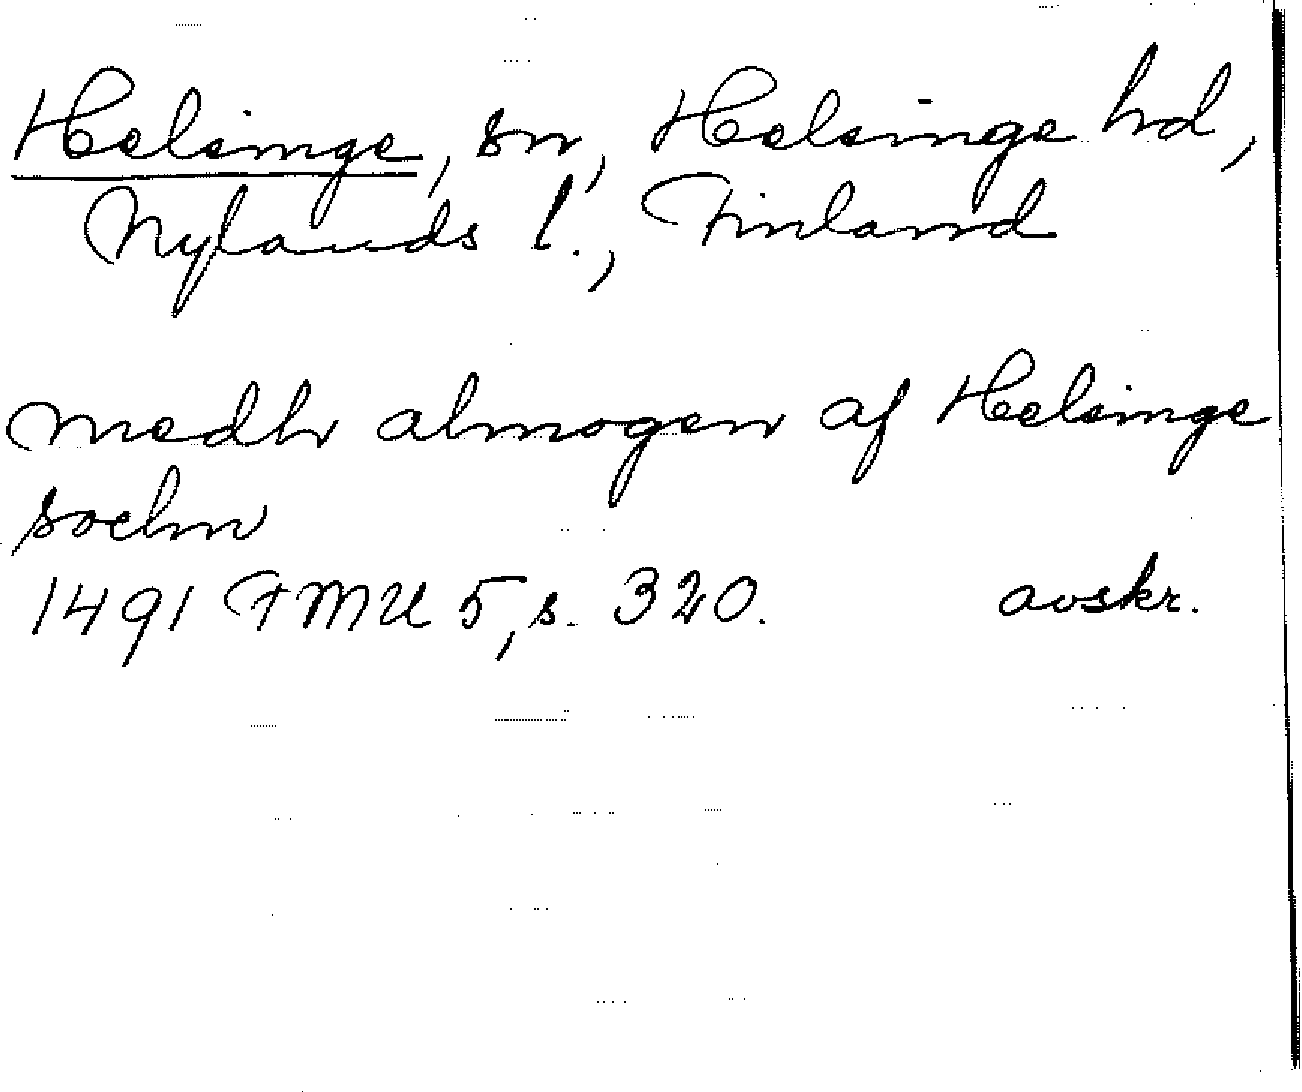 Helsinge, sn, Helsinge hd,
Nylands l., Finland
medh almogen af Helsinge
sochn
1491 FMU 5, s. 320. avskr.